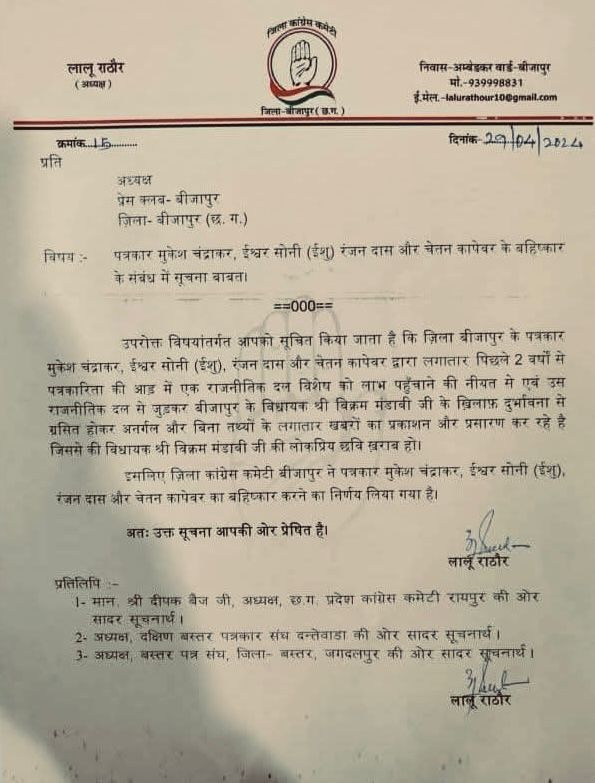 जिला कांग्रेस कमेटी
लालू राठौर
(अध्यक्ष)
जिला-बीजापुर (छ.ग.)
निवास-अम्बेडकर वार्ड-बीजापुर
मो.-939998831
ई.मेल.-lalurathour10@gmail.com
क्रमांक...15..........
दिनांक-29/04/2024
प्रति
अध्यक्ष
प्रेस क्लब- बीजापुर
ज़िला- बीजापुर (छ. ग.)
विषय :- पत्रकार मुकेश चंद्राकर, ईश्वर सोनी (ईशु) रंजन दास और चेतन कापेवर के बहिष्कार
के संबंध में सूचना बाबत।
==000==
उपरोक्त विषयांतर्गत आपको सूचित किया जाता है कि ज़िला बीजापुर के पत्रकार
मुकेश चंद्राकर, ईश्वर सोनी (ईशु), रंजन दास और चेतन कापेवर द्वारा लगातार पिछले 2 वर्षो से
पत्रकारिता की आड में एक राजनीतिक दल विशेष को लाभ पहुँचाने की नीयत से एवं उस
राजनीतिक दल से जुडकर बीजापुर के विधायक श्री विक्रम मंडावी जी के ख़िलाफ़ दुर्भावना से
ग्रसित होकर अनर्गल और बिना तथ्यों के लगातार खबरों का प्रकाशन और प्रसारण कर रहे है
जिससे की विधायक श्री विक्रम मंडावी जी की लोकप्रिय छवि ख़राब हो।
इसलिए ज़िला कांग्रेस कमेटी बीजापुर ने पत्रकार मुकेश चंद्राकर, ईश्वर सोनी (ईशु),
रंजन दास और चेतन कापेवर का बहिष्कार करने का निर्णय लिया गया है।
अतः उक्त सूचना आपकी ओर प्रेषित है।
लालू राठौर
प्रतिलिपि :-
1- मान. श्री दीपक बैज जी, अध्यक्ष, छ.ग. प्रदेश कांग्रेस कमेटी रायपुर की ओर
सादर सूचनार्थ।
2- अध्यक्ष, दक्षिण बस्तर पत्रकार संघ दन्तेवाडा की ओर सादर सूचनार्थ।
3- अध्यक्ष, बस्तर पत्र संघ, जिला- बस्तर, जगदलपुर की ओर सादर सूचनार्थ।
लालू राठौर